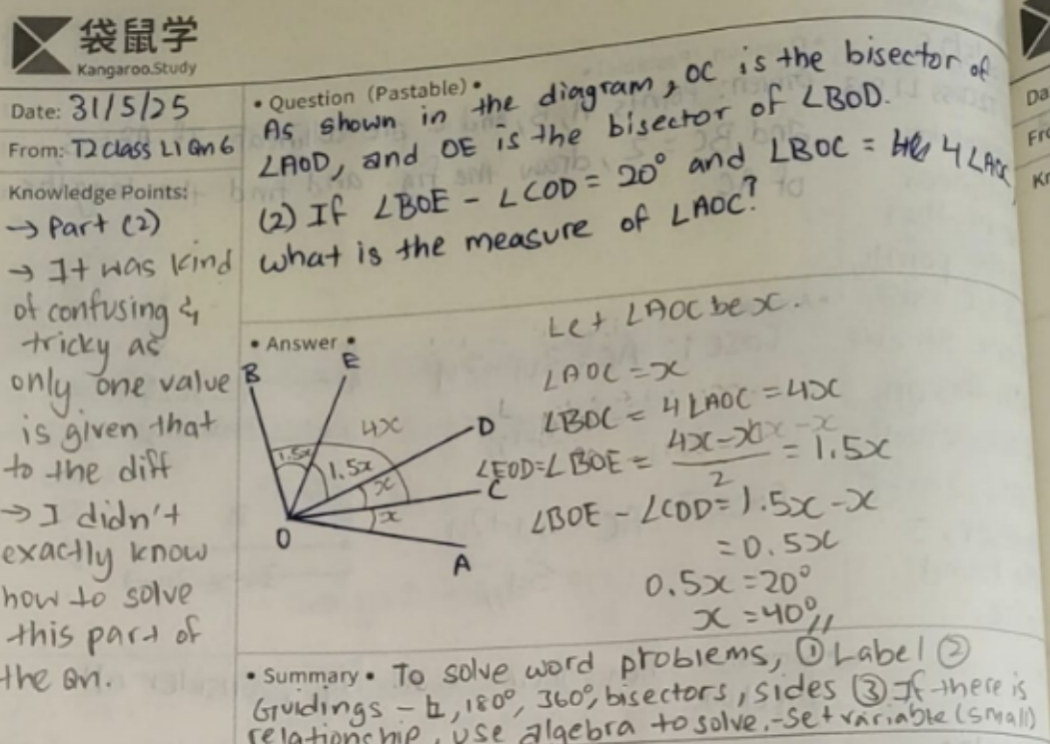 袋鼠学
Kangaroo.Study
Date: 31/5/25
From: T2 Class L1 Qn 6
Knowledge Points:
→ Part (2)
→ It was kind
of confusing &
tricky as
only one value
is given that
to the diff
→ I didn't
exactly know
how to solve
this part of
the Qn.
• Question (Pastable) •
As shown in the diagram, OC is the bisector of
∠AOD, and OE is the bisector of ∠BOD.
(2) If ∠BOE - ∠COD = 20° and ∠BOC = 4∠AOC
what is the measure of ∠AOC?
• Answer •
B
E
4x
D
1.5x
1.5x
x
C
x
O
A
Let ∠AOC be x.
∠AOC = x
∠BOC = 4∠AOC = 4x
∠EOD = ∠BOE = 4x-x-x / 2 = 1.5x
∠BOE - ∠COD = 1.5x - x
= 0.5x
0.5x = 20°
x = 40°//
• Summary • To solve word problems, ① Label ②
Guidings - ⊾, 180°, 360°, bisectors, sides ③ If there is
relationship, use algebra to solve. - Set variable (small)
Da
Fro
Kr